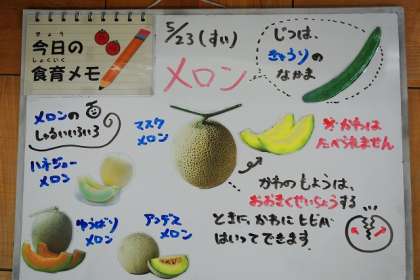 きょう
今日の
しょくいく
食育メモ
5/23(すい)
メロン
じつは、
きゅうりの
なかま
メロンの
しゅるいいろいろ
マスク
メロン
※かわは
たべられません
ハネジュー
メロン
ゆうばり
メロン
アンデス
メロン
かわのもようは、
おおきくせいちょうする…
ときに、かわにヒビが
はいってできます。